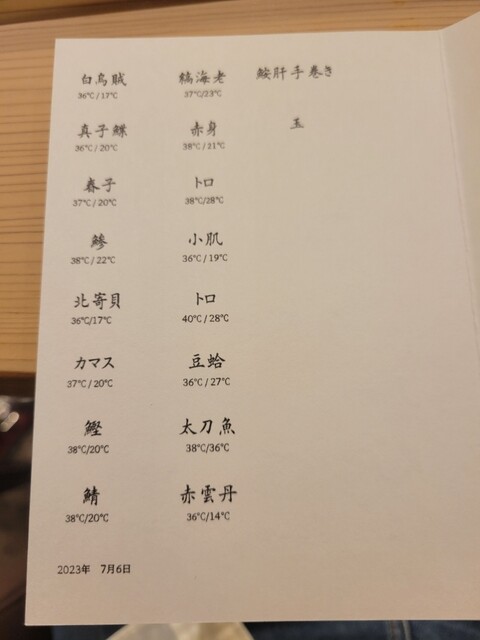 白烏賊
36℃/17℃
真子鰈
36℃/20℃
春子
37℃/20℃
鯵
38℃/22℃
北寄貝
36℃/17℃
カマス
37℃/20℃
鰹
38℃/20℃
鯖
38℃/20℃
縞海老
37℃/23℃
赤身
38℃/21℃
トロ
38℃/28℃
小肌
36℃/19℃
トロ
40℃/28℃
豆蛤
36℃/27℃
太刀魚
38℃/36℃
赤雲丹
36℃/14℃
鮟肝手巻き
玉
2023年 7月6日